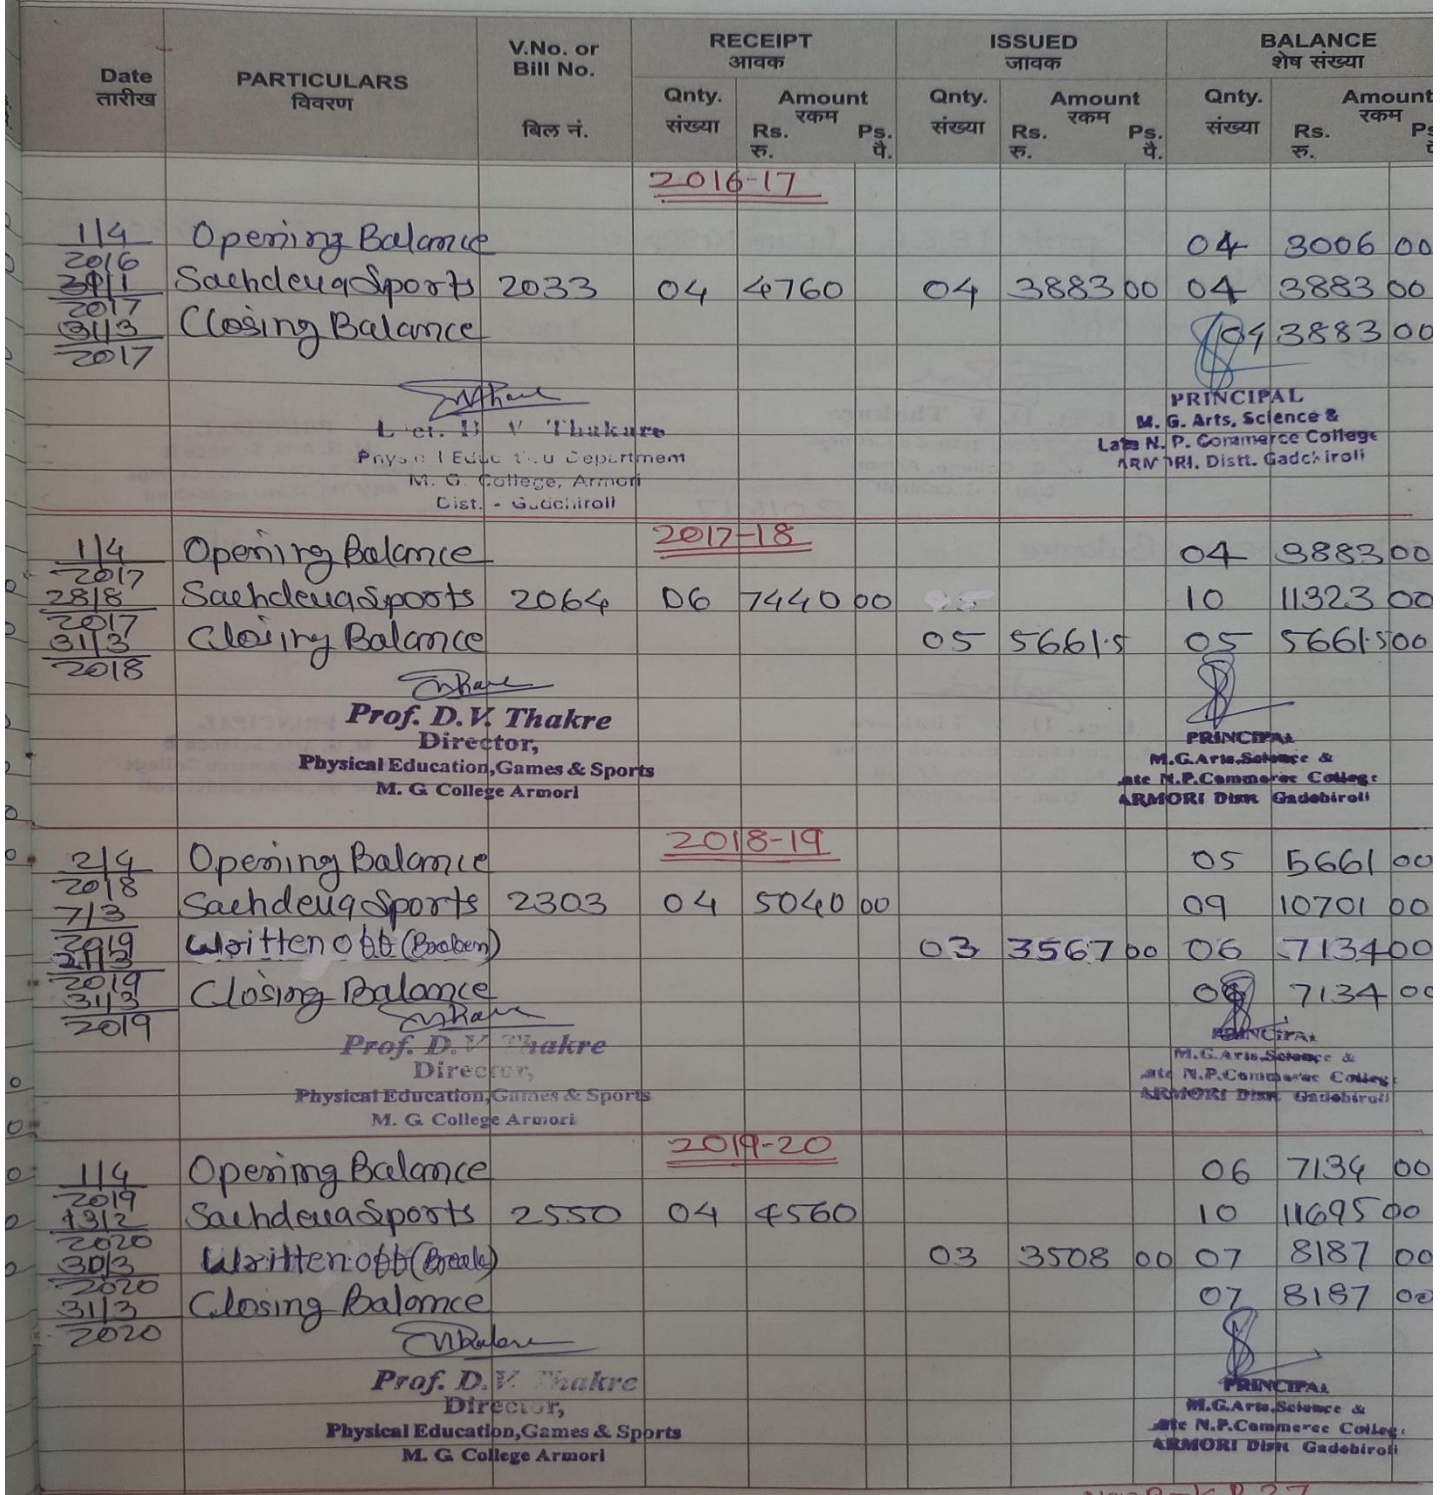 Date
तारीख
PARTICULARS
विवरण
V.No. or
Bill No.
बिल नं.
RECEIPT
आवक
ISSUED
जावक
BALANCE
शेष संख्या
Qnty.
संख्या
Amount
रकम
Rs.
रु.
Ps.
पै.
Qnty.
संख्या
Amount
रकम
Rs.
रु.
Ps.
पै.
Qnty.
संख्या
Amount
रकम
Rs.
रु.
2016-17
1/4/2016 Opening Balance 04 3006 00
2017 Sachdeva Sports 2033 04 4760 04 3883 00 04 3883 00
31/3/2017 Closing Balance 04 3883 00
Lect. D V Thakare
Physical Education Department
M. G. College, Armori
Dist. - Gadchiroli
PRINCIPAL
M. G. Arts, Science &
Late N. P. Commerce College
ARMORI, Distt. Gadchiroli
2017-18
1/4/2017 Opening Balance 04 3883 00
28/8/2017 Sachdeva Sports 2064 06 7440 00 10 11323 00
31/3/2018 Closing Balance 05 5661.5 05 5661.500
Prof. D.V. Thakre
Director,
Physical Education,Games & Sports
M. G College Armori
PRINCIPAL
M.G.Arts,Science &
ate N.P.Commerce College
ARMORI Distt Gadchiroli
2018-19
2/4/2018 Opening Balance 05 5661 00
7/3/2019 Sachdeva Sports 2303 04 5040 00 09 10701 00
2019 Written off (Broken) 03 3567 00 06 7134 00
31/3/2019 Closing Balance 06 7134 00
Prof. D.V. Thakre
Director,
Physical Education,Games & Sports
M. G. College Armori
PRINCIPAL
M.G.Arts,Science &
ate N.P.Commerce Colleg
ARMORI Distt Gadchiroli
2019-20
1/4/2019 Opening Balance 06 7134 00
13/2/2020 Sachdeva Sports 2550 04 4560 10 11695 00
30/3/2020 Written off (Break) 03 3508 00 07 8187 00
31/3/2020 Closing Balance 07 8187 00
Prof. D.V. Thakre
Director,
Physical Education,Games & Sports
M. G. College Armori
PRINCIPAL
M.G.Arts,Science &
ate N.P.Commerce Colleg
ARMORI Distt Gadchiroli